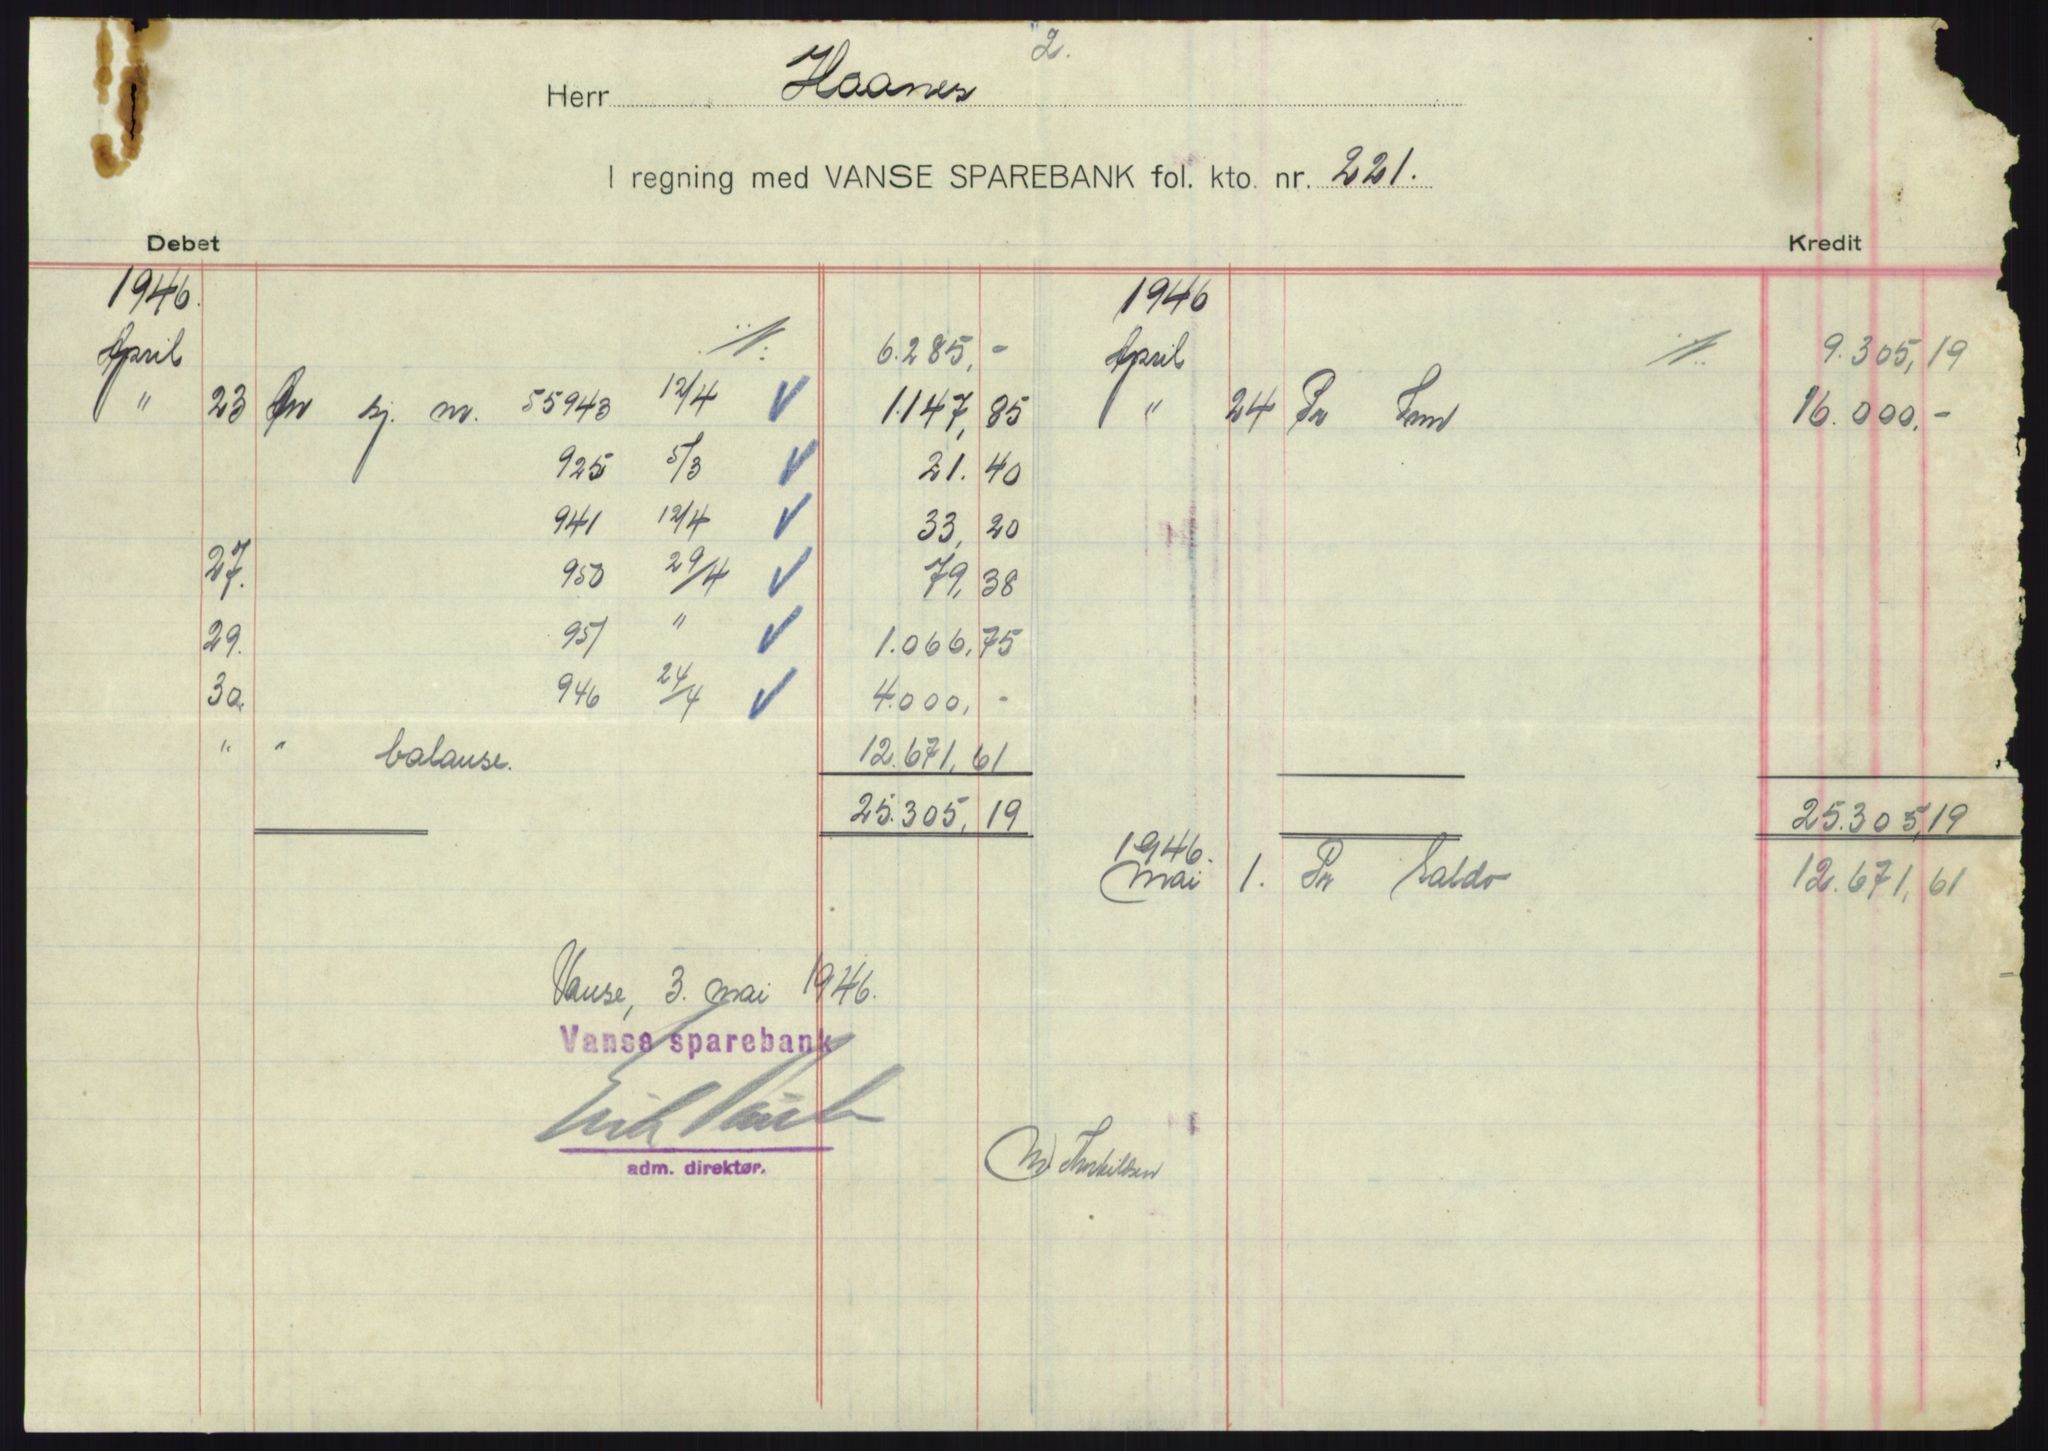 2.
Herr Haanes
I regning med VANSE SPAREBANK fol. kto. nr. 221.
Debet Kredit
1946. 1946
April 6.285,- April 9.305,19
" 23 Pr sj. nr. 55943 12/4 ✓ 1.147,85 " 24 Pr Inns 16.000,-
925 5/3 ✓ 21.40
941 12/4 ✓ 33,20
27. 950 29/4 ✓ 79,38
29. 951 " ✓ 1.066,75
30. 946 24/4 ✓ 4.000,-
" " balanse. 12.671,61
25.305,19 25.305,19
1946.
Mai 1. Pr Saldo 12.671,61
Vanse, 3. mai 1946.
Vanse sparebank
adm. direktør.
Thorkildsen